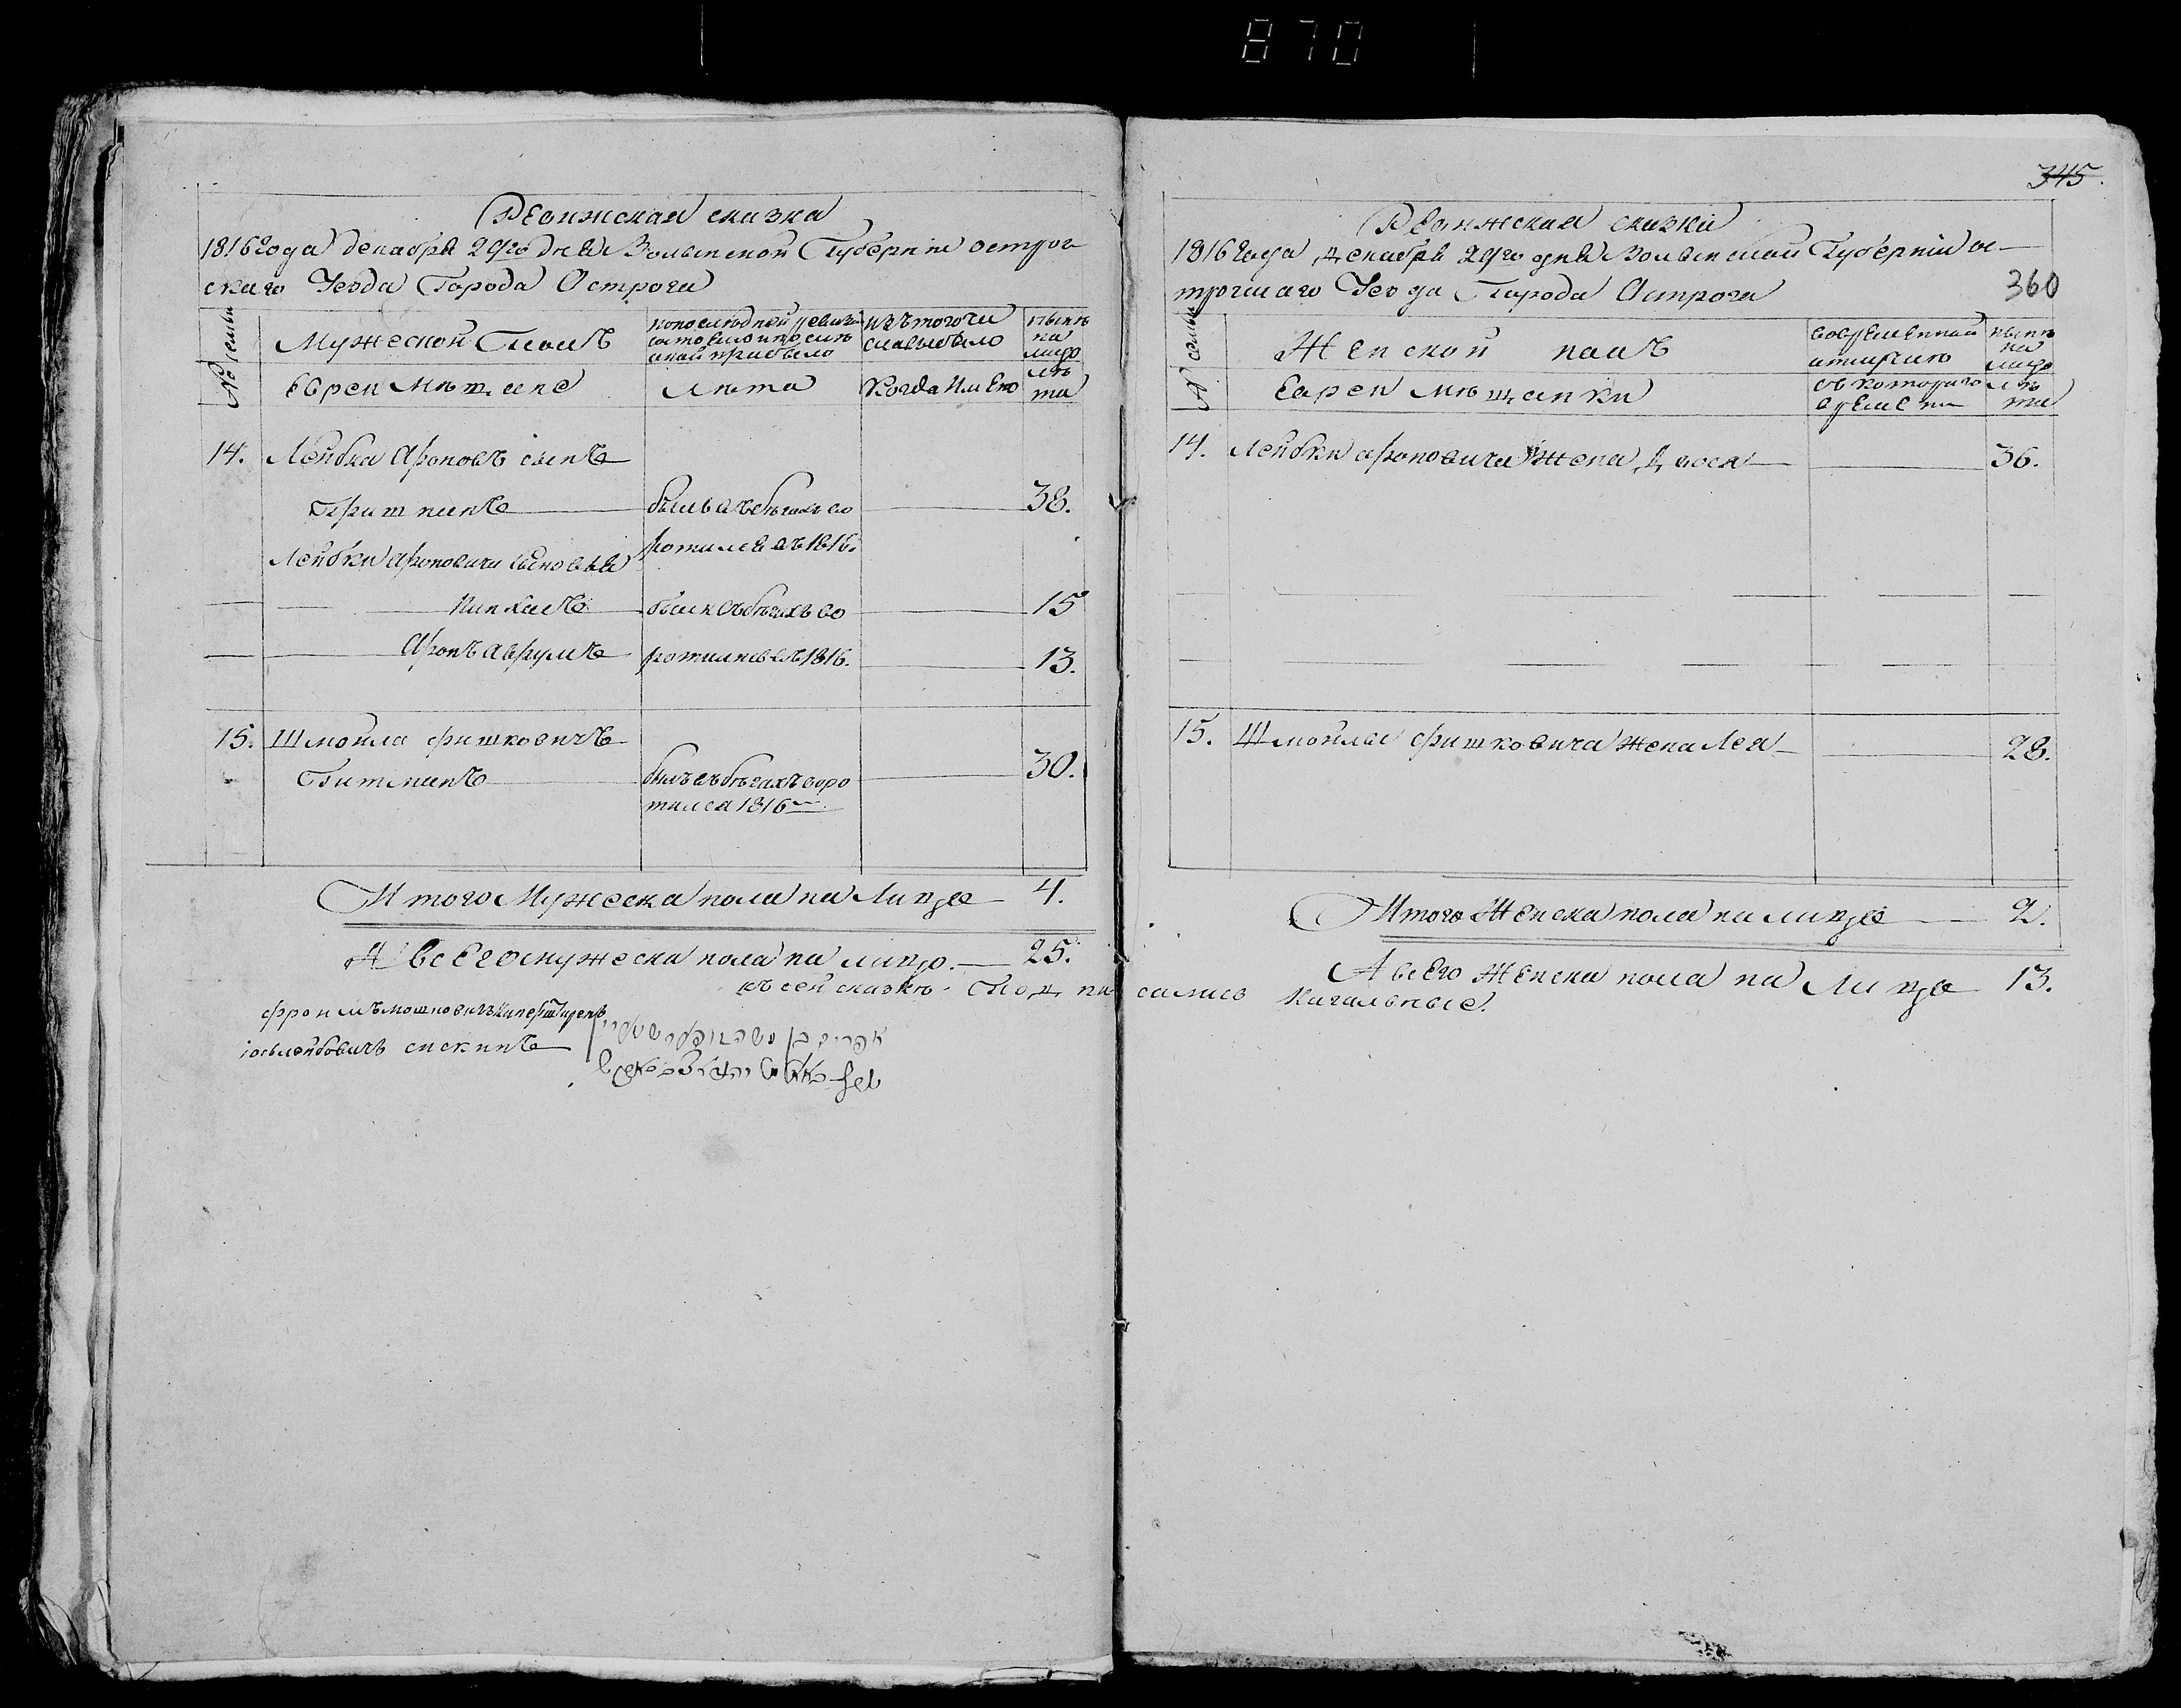 870
Ревижская сказка
1816 года декабря 29го дня Волынской Губернiи острог
скаго Уезда Города Острога
№ семьи
Мужеской Полъ
по последней ревизiи
состояло и после
оной прибыло
изъ того чи
сла выбыло
ныне
на
лицо
Евреи мещане
лета
Когда имено
ле
та
14. Лейбка Ароновъ сынъ
былъ въ бегахъ во 38.
ротился въ 1816.
Лейбки Ароновича сыновья
Пинхасъ были въ бегахъ во 15
Аронъ Аврумъ ротились въ 1816. 13.
15. Шмойла Фишковичъ
былъ въ бегахъ воро 30.
тился 1816
Итого Мужеска пола на Лицо 4.
А всего мужеска пола на лицо. 25.
къ сей сказке подписались Кагальные
Фроимъ Мошковичъ
iосьлейбовичъ
345.
Ревижская сказка
1816 года Декабря 29го дня Волынской Губернiи ос
трогшаго Уезда Города Острога
360
№ семьи
Женской полъ
во временной
отлучке
ныне
на
лицо
Евреи мещанки
съ котораго
времени
ле
та
14. Лейбки Ароновича Жена Двося 36.
15. Шмойлы Фишковича жена Лея 28.
Итого Женска пола на лицо 2.
А всего Женска пола на Лицо 13.